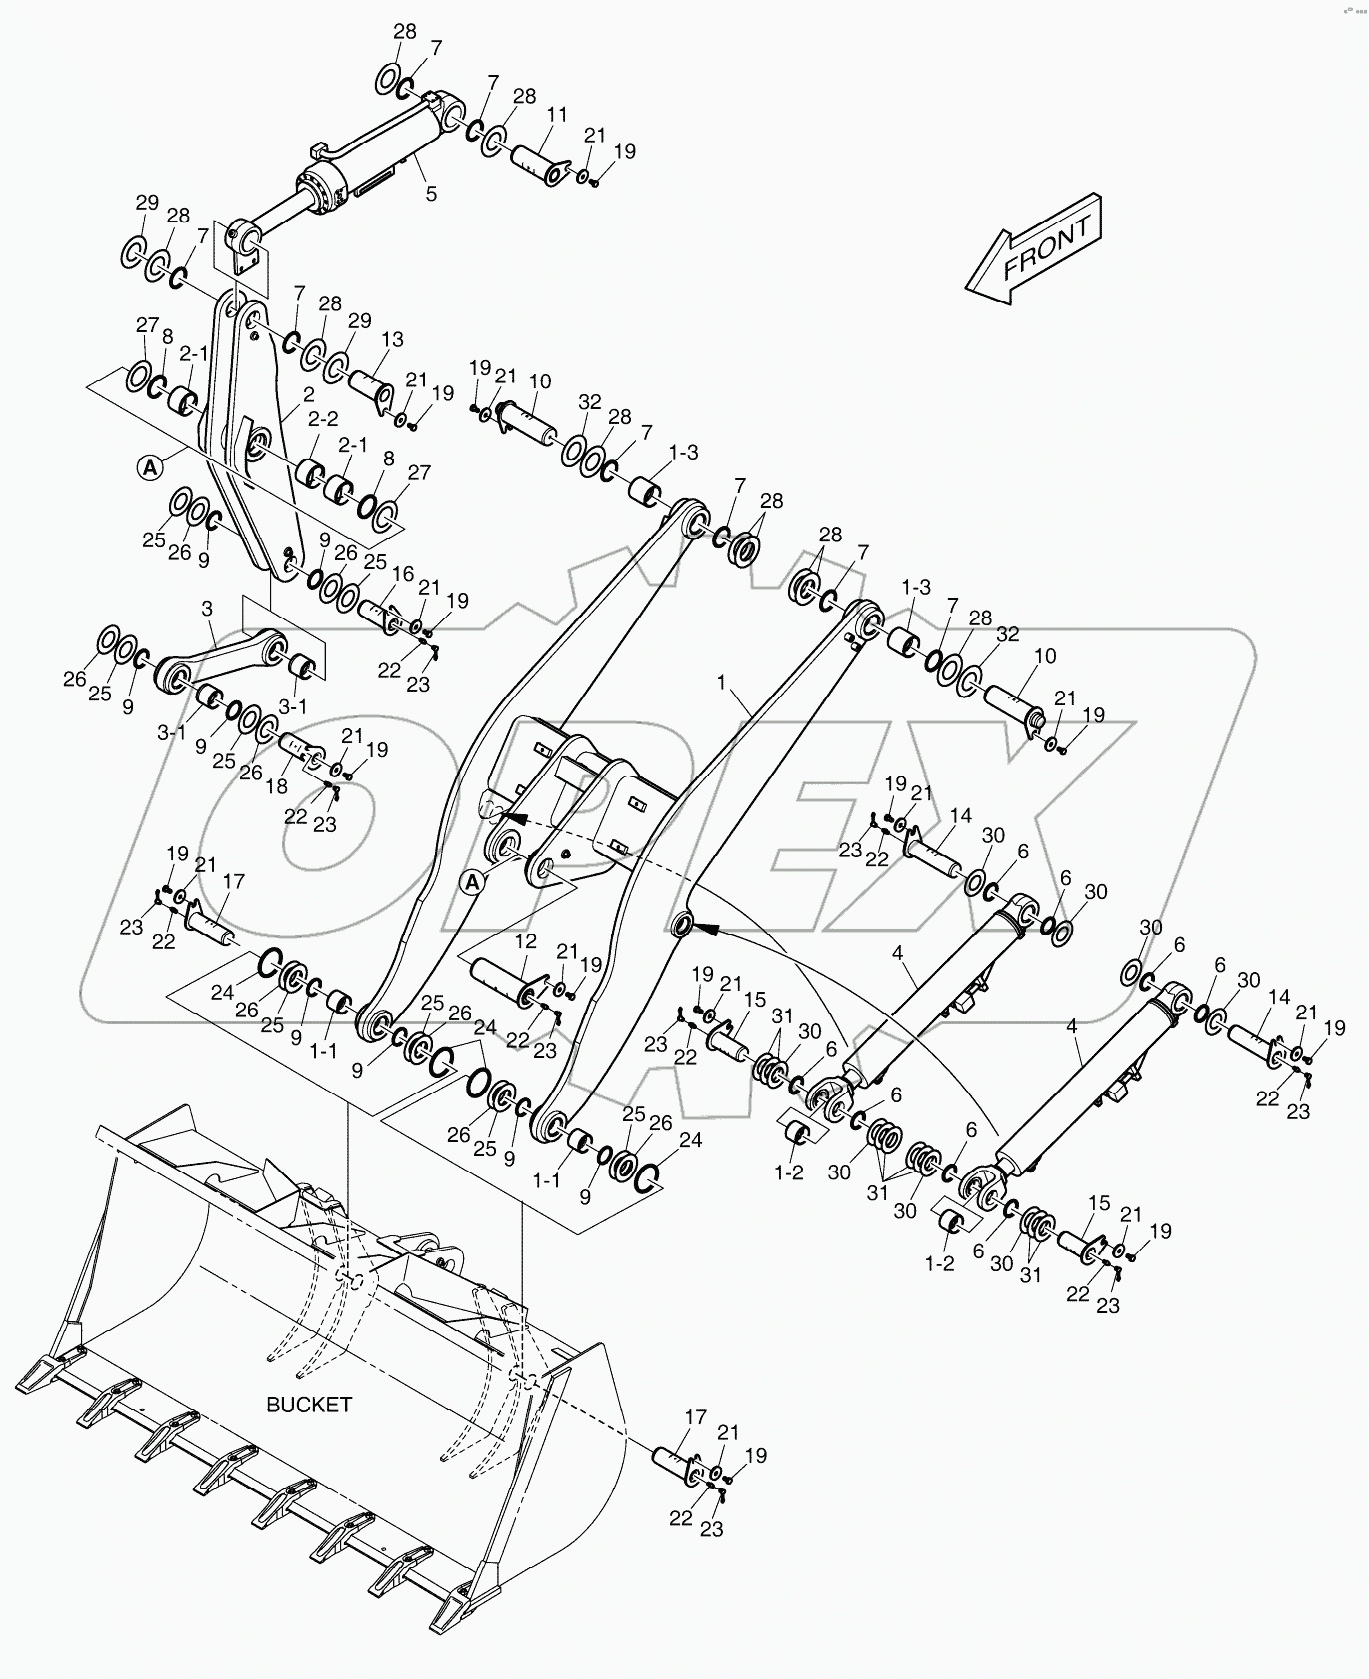 28 7
7 28 11 21 19
5
FRONT
29 28 7
7 28 29 13 21 19
27 8 2-1
2
2-2 2-1 8 27
A
25 26 9
9 26 25 16 21 19
22 23
19 21 10
32 28 7 1-3
7 28
28 7
1-3 7 28 32 10
21 19
3
26 25 9
3-1
3-1 9 25 26 18 21 19
22 23
1
A
19 21 17
23 22
24 26 25 9 1-1
9 25 26 24
12 21 19
22 23
26 25 9 1-1
9 25 26 24
19 21 14
23 22
30 6
6 30
4
30 6
6 30 14 21 19
22 23
4
19 21 15
23 22
31 30 6
1-2
6
30 31 30
6
1-2
6 30 31
15 21 19
22 23
OPEX
BUCKET
17 21 19
22 23